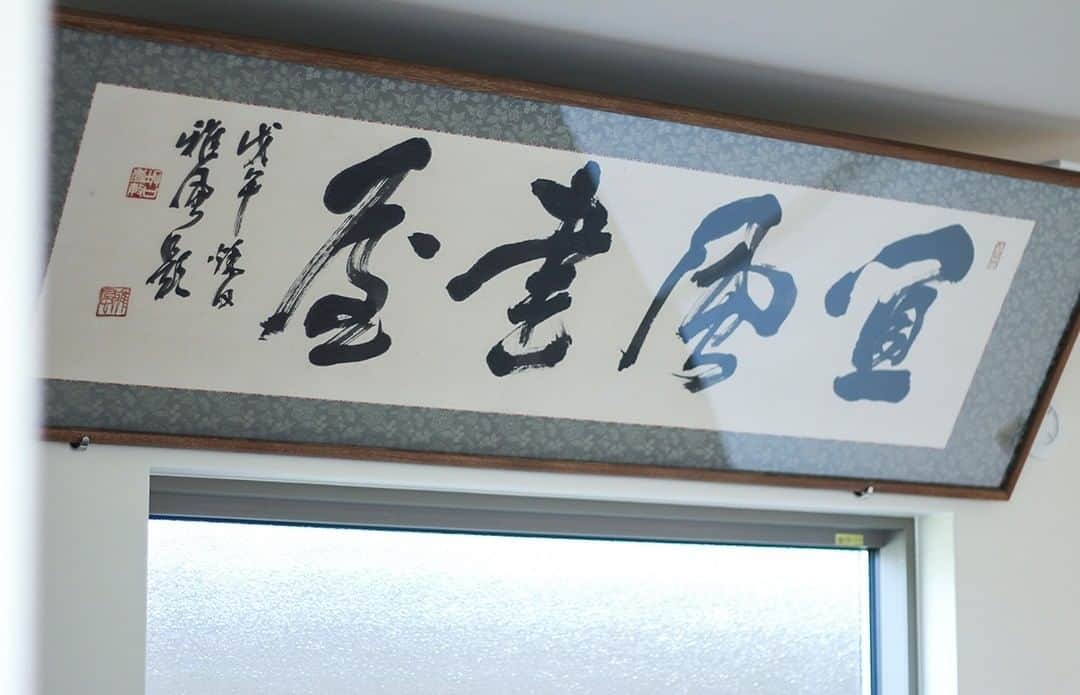 宜風書屋
戊午 秋日
雅風 題